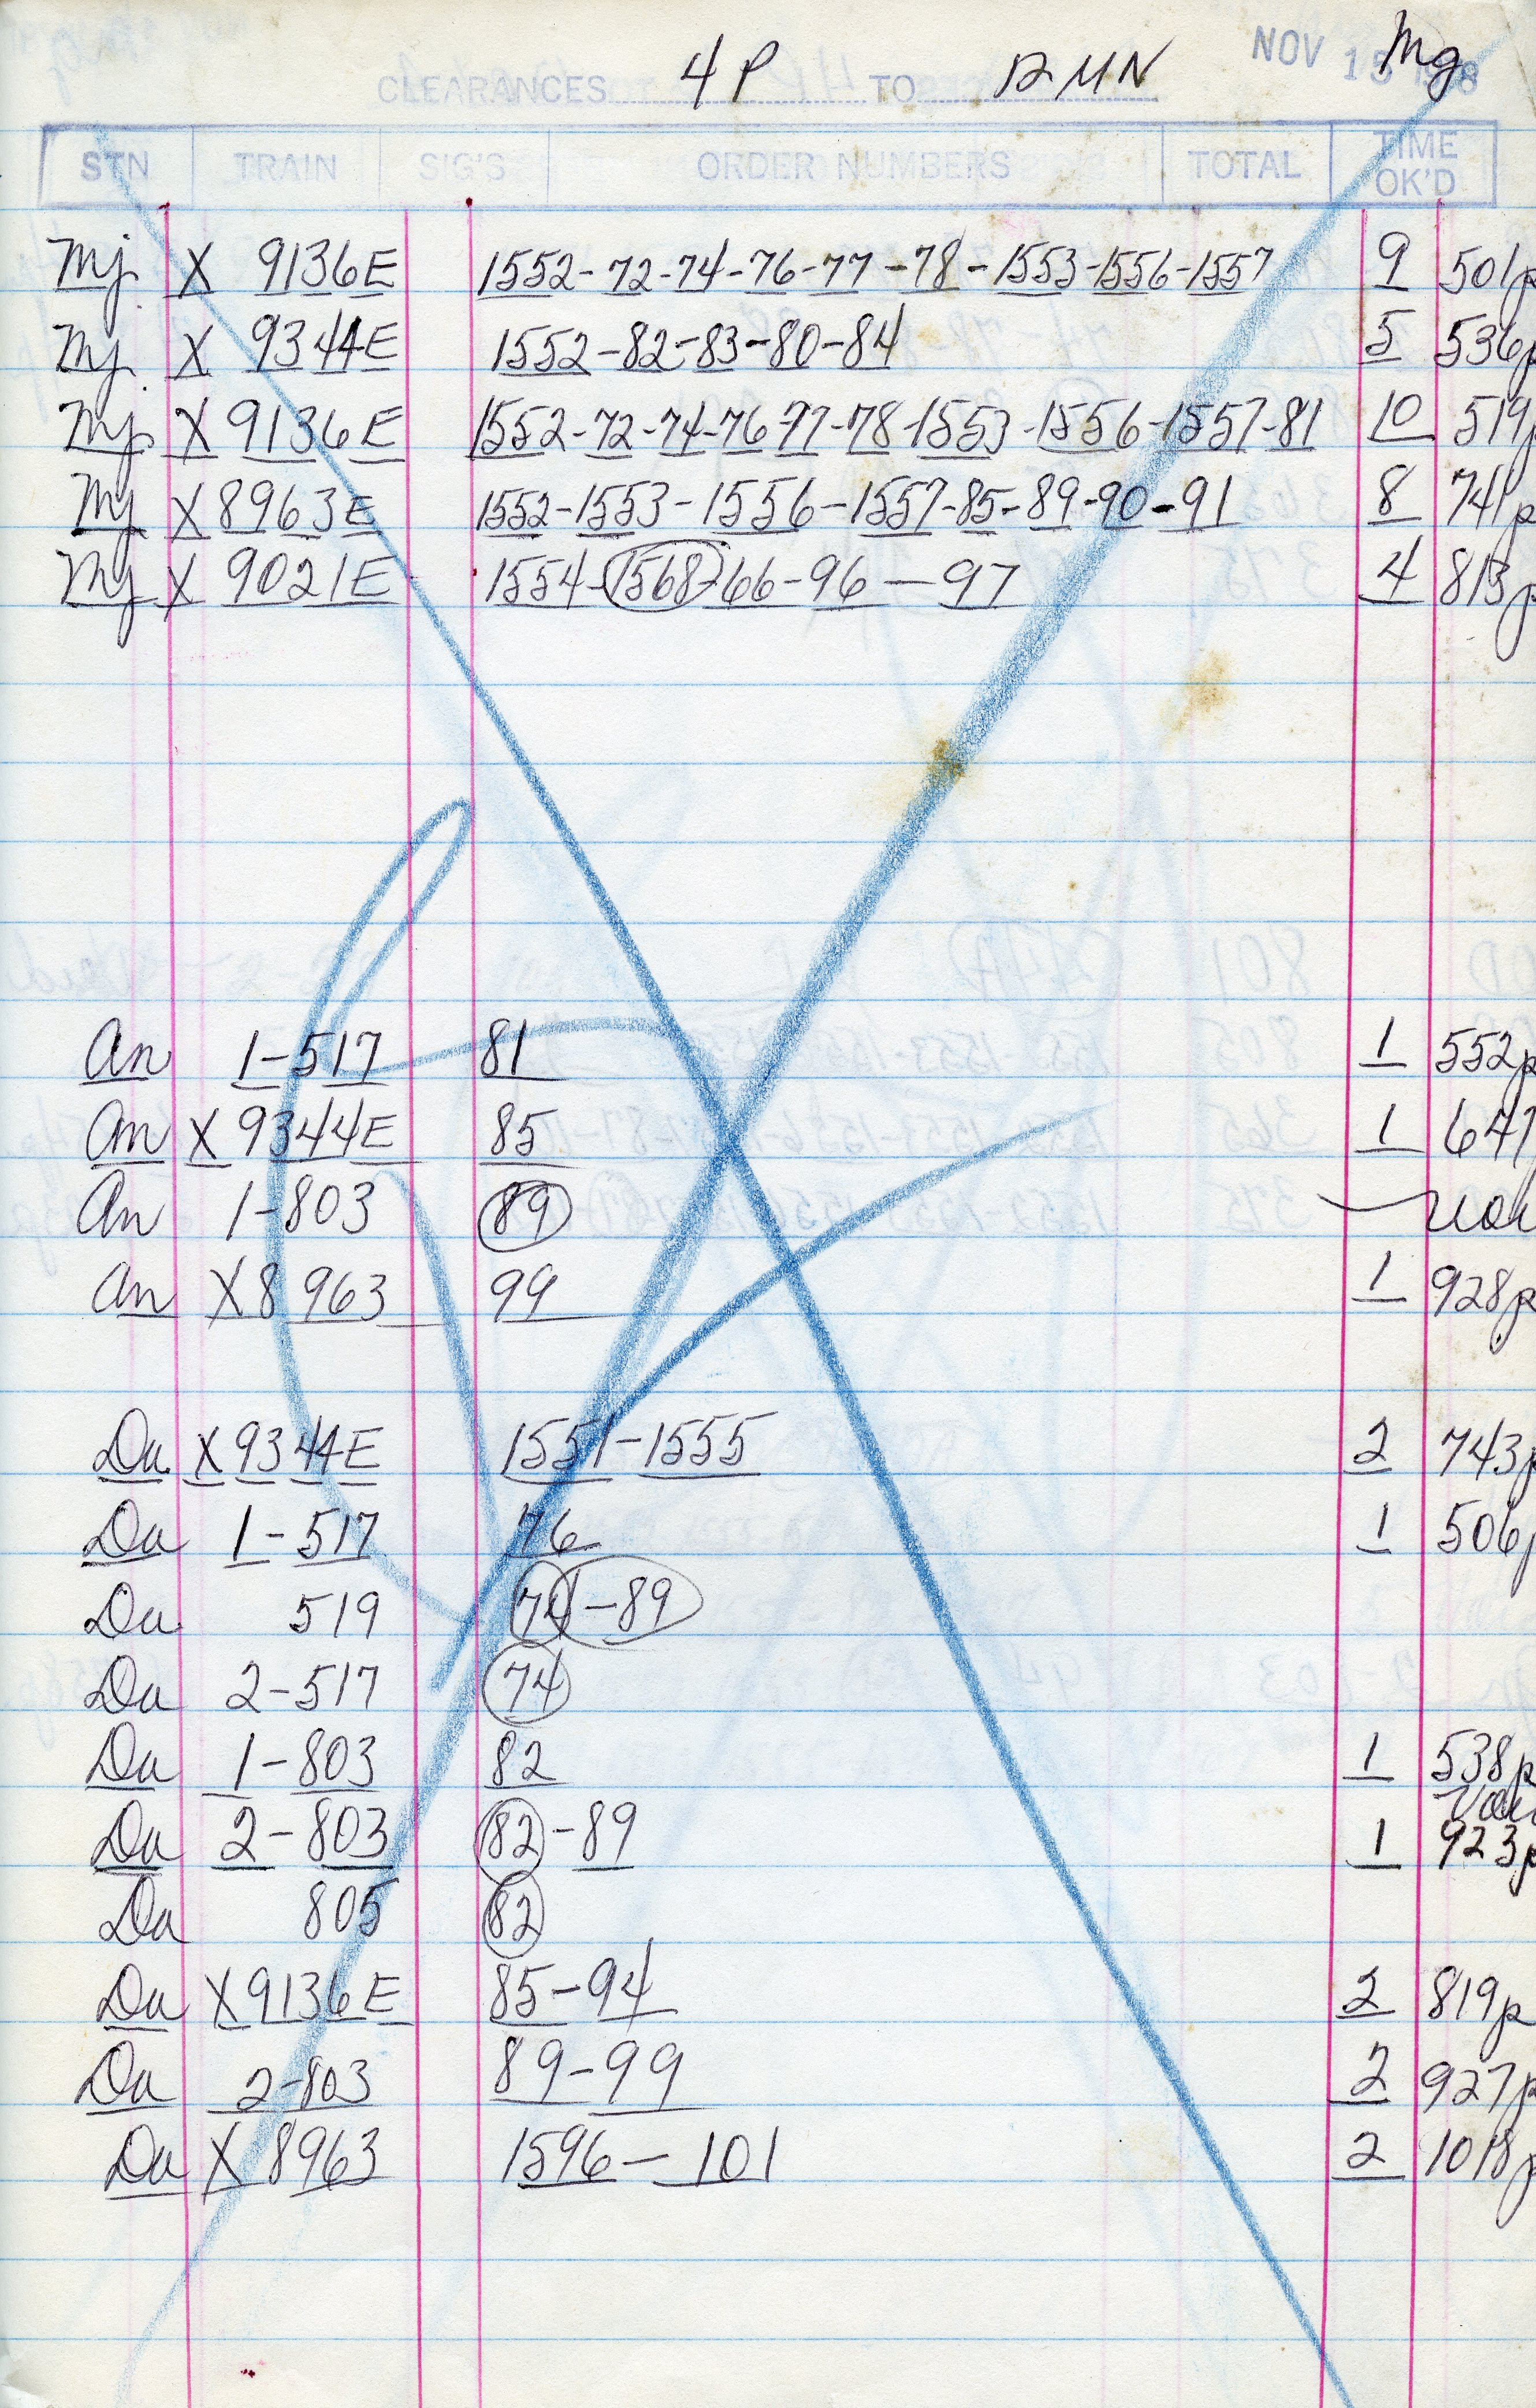 NOV 15 1968 Mg
CLEARANCES 4 P TO 12 MN
STN TRAIN SIG'S ORDER NUMBERS TOTAL TIME OK'D
Mj X 9136E 1552-72-74-76-77-78-1553-1556-1557 9 501p
Mj X 9344E 1552-82-83-80-84 5 536p
Mj X 9136E 1552-72-74-76-77-78-1553-1556-1557-81 10 519p
Mj X 8963E 1552-1553-1556-1557-85-89-90-91 8 741p
Mj X 9021E 1554-1568-66-96-97 4 813p
An 1-517 81 1 552p
An X 9344E 85 1 647
An 1-803 89
An X 8963 99 1 928p
Da X 9344E 1551-1555 2 743p
Da 1-517 76 1 506p
Da 519 74-89
Da 2-517 74
Da 1-803 82 1 538p
Da 2-803 82-89 1 923p
Da 805 82
Da X 9136E 85-94 2 819p
Da 2-803 89-99 2 927p
Da X 8963 1596-101 2 1018p